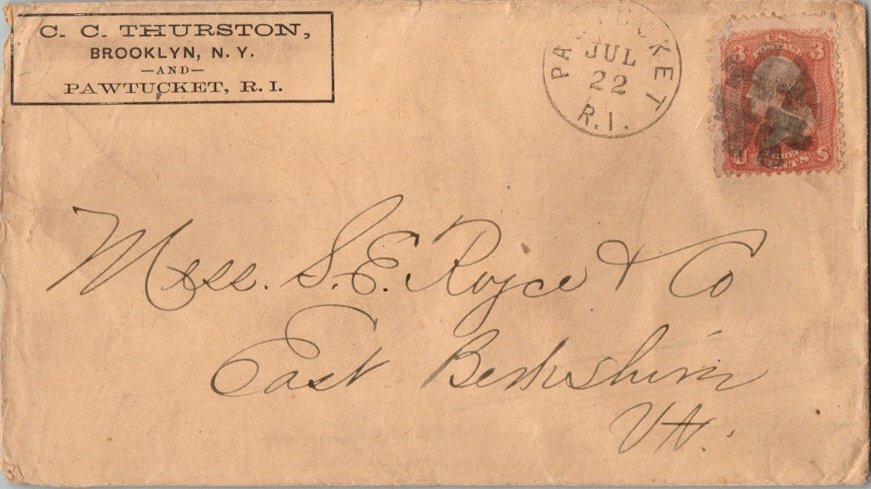 C. C. THURSTON,
BROOKLYN, N. Y.
—AND—
PAWTUCKET, R. I.
PAWTUCKET
JUL
22
R.I.
3 U.S. 3
POSTAGE
U S
CENTS
Mess. S. E. Royce & Co
East Berkshire
Vt.